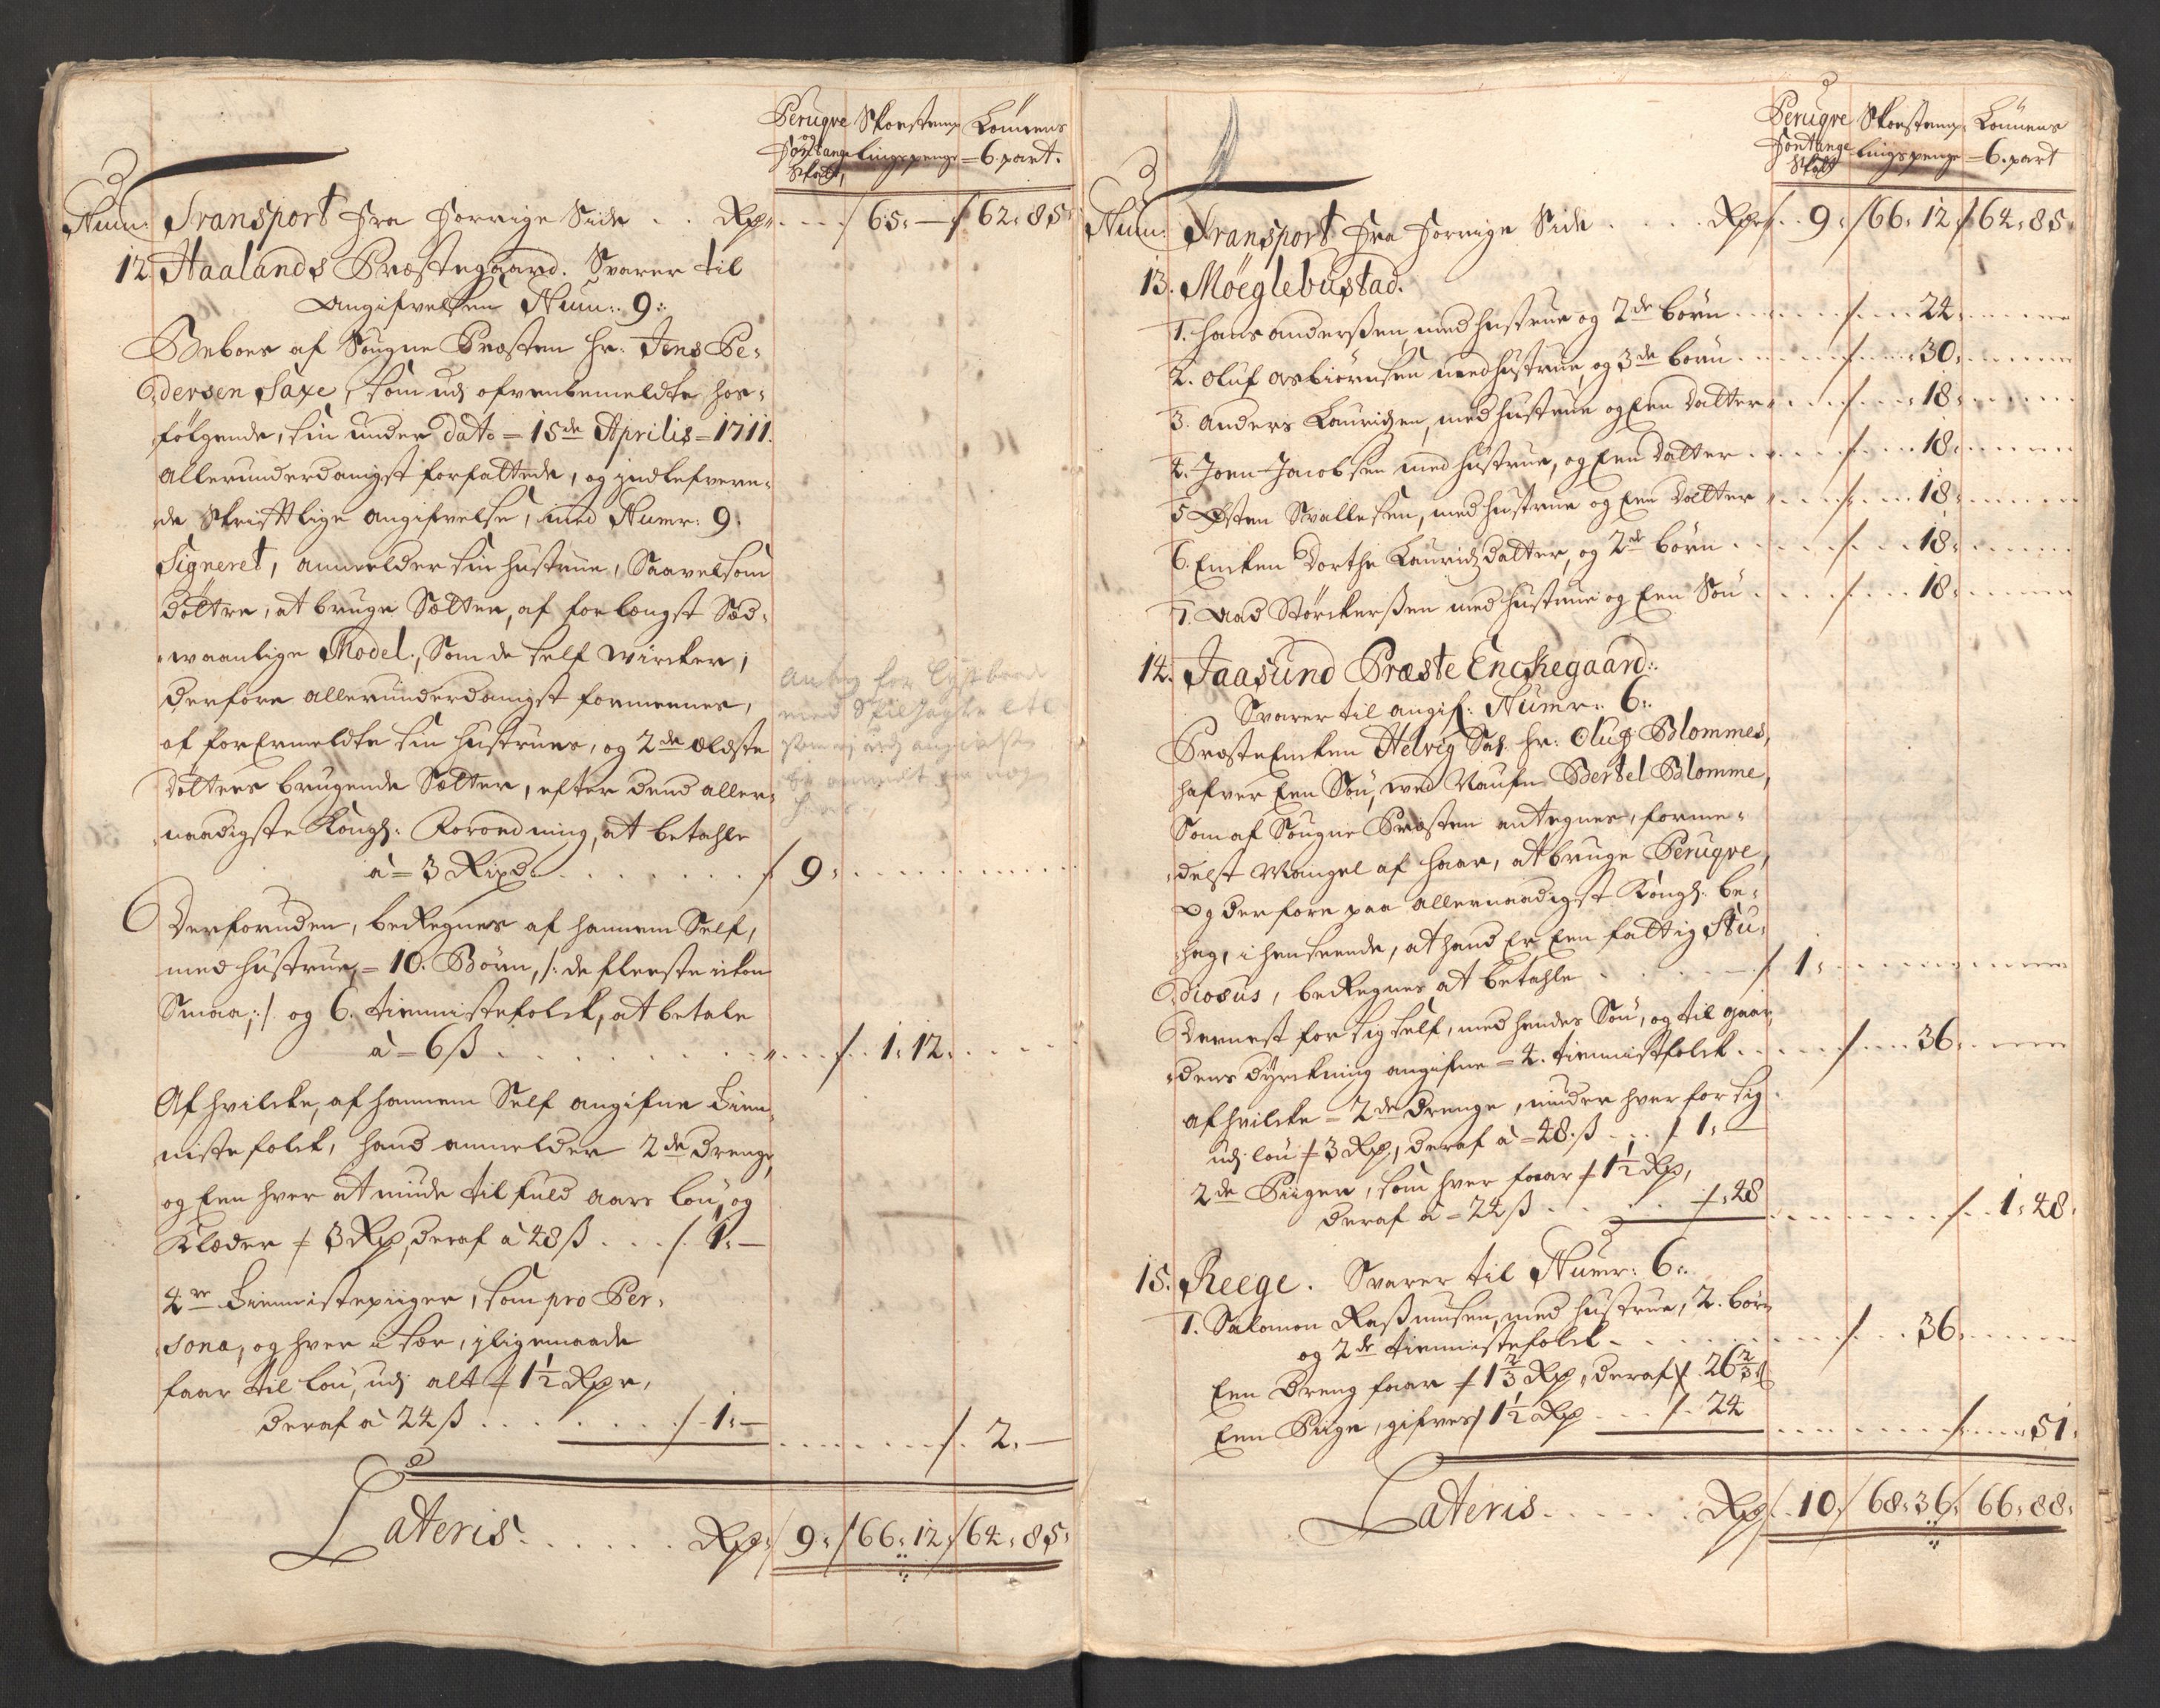 Perugve Skoestemp Lönnens
og
Fontange lingspenge 6. part.
Skatt,
Num: Transport fra forrige Side . . Rp . . . / 65: — / 62: 85
12. Haalands Præstegaard. Svarer til
Angifvelsen Num: 9:
Beboes af Sougne Præsten Hr. Jens Pe-
dersen Saxe, som udj ofvenbemeldte hos-
fölgende, sin under dato = 15de Aprilis = 1711.
allerunderdanigst forfattede, og indlefvere-
de skrifftlige angifvelse, med Numr: 9.
Signeret, anmelder sin hustrue, Saavelsom
döttre, at bruge Setter, af forlængst Sæd-
waanlige Model, Som de self wircker,
derfore allerunderdanigst formeenes,
af forermeldte sin hustrues, og 2de ældste
Dötters brugende Setter, efter dend aller-
naadigste Kongl: Forordning, at betahle
à = 3 Rixd. . . . . . . . / 9: . . . . .
Derforuden, beregnes af hannem Self,
med hustrue, = 10. Börn, /: de fleeste ickon
Smaa, :/ og 6. tiennistefolck, at betale
à = 6 ß . . . . . . . . . / 1: 12: . . . .
Af hvilcke, af hannem Self angifne tien-
nistefolck, hand anmelder 2de drenge,
og Een hver at niude til fuld aars lön, og
Klæder / 3 Rp, deraf à 48 ß . . . / 1: —
4re Tiennistepiiger, som pro Per-
sona, og hver i sær, iligemaade
faar til lön, udj alt / 1½ Rpr,
deraf à 24 ß . . . . . . . / 1: —
. . . . . . / 2. —
Lateris . . . . . . Rp / 9: / 66: 12: / 64: 85:
Perugve Skoestemp Lönnens
Fontange lingspenge 6. part
Skatt
Num: Transport fra forrige Side . . . . Rp / . . 9: / 66: 12: / 64: 85:
13. Möeglebustad.
1. Hans anderßen, med hustrue og 2de börn . . . . . / . . . 24: . . . .
2. Oluf Asbiörnsen med hustrue, og 3de börn . . . . . / . . . 30: . . . .
3. Anders Lauridzen, med hustrue og Een datter . . . / . . . 18: . . . .
4. Joen Jacobsen med hustrue, og Een datter . . . . / . . . 18: . . . .
5 Östen Svallesen, med hustrue og Een datter . . . . / . . . 18: . . . .
6. Encken Dorthe Lauridzdatter, og 2de börn . . . . . / . . . 18: . . . .
7. Aad Störckerßen med hustrue og Een Sön . . . . / . . . 18: . . . .
14. Jaasund Præste Enckegaard:
Svarer til angif: Numr: 6:
Præste Encken Helvig Sal. Hr: Oluf Blommes,
hafver Een Sön, ved Naufn Bertel Blomme,
Som af Sougne Præsten antegnes, forme-
delst Mangel af haar, at bruge Perugve,
og derfore paa allernaadigst Kongl: be-
hag, i henseende, at hand Er Een fattig Stu-
diosus, beregnes at betahle . . . . . . / 1: . . . . .
Dernest for sig self, med hendes Sön, og til gaar-
dens dyrckning angifne = 4. tiennistfolck . . . . . / . . . 36. . . .
af hvilcke = 2de drenge, niuder hver for sig
udj lön / 3 Rp, deraf à = 48. ß . . . / 1: —
2de Piiger, som hver faar / 1½ Rp,
deraf à = 24 ß . . . . . . / 48
. . . . . . . / . . 1: 48:
15. Reege. Svarer til Numr: 6:
1. Salomon Raßmusen, med hustrue, 2. börn
og 2de tiennistefolck . . . . . . . . / . . . 36. . . . .
Een Dreng faar / 1⅔ Rp, deraf / . 26⅔ ß
Een Piige, gifves / 1½ Rp . . . . / . . 24
. . . . . . / . . . 51:
Lateris . . . . . . Rp / . . 10 / 68: 36: / 66: 88: